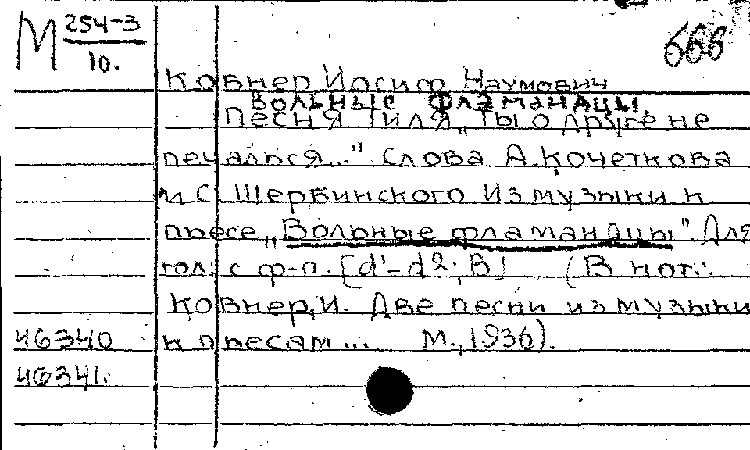 М 254-3
10.
666
Ковнер Иосиф Наумович
Вольные фламандцы
Песня Тиля „Ты о друге не
печалься..." Слова А. Кочеткова
и С. Щербинского Из музыки к
пьесе „Вольные фламандцы". Для
гол. с ф-п. [d'-d²; B] (В нот.:
Ковнер, И. Две песни из музыки
46340 к пьесам... М., 1936).
46341.